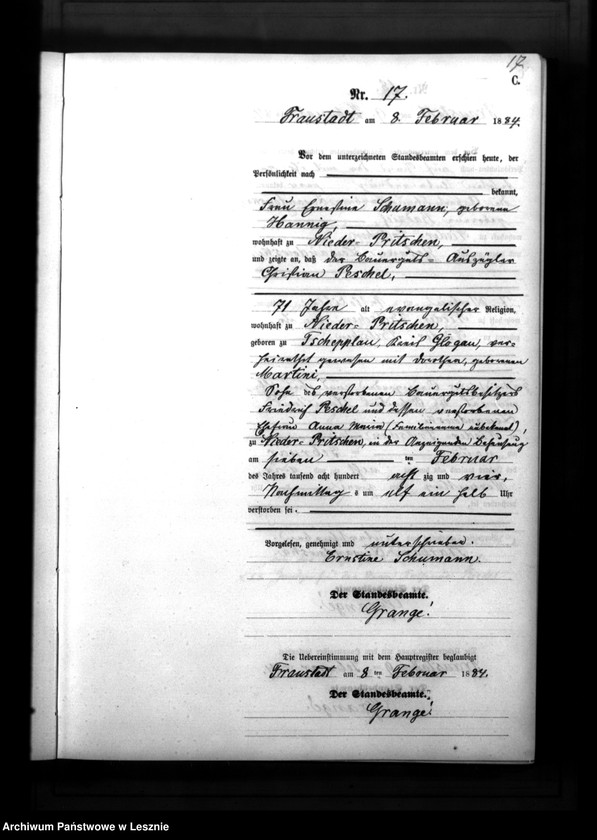 17
C.
Nr. 17.
Fraustadt am 8. Februar 1884.
Vor dem unterzeichneten Standesbeamten erschien heute, der
Persönlichkeit nach
bekannt,
Frau Ernestine Schumann, geborene
Hannig,
wohnhaft zu Nieder-Pritschen,
und zeigte an, daß der Bauerguts-Auszügler
Christian Peschel,
71 Jahre alt evangelischer Religion,
wohnhaft zu Nieder-Pritschen,
geboren zu Tschepplau, Kreis Glogau, ver-
heirathet gewesen mit Dorothea, geborenen
Martini,
Sohn des verstorbenen Bauergutsbesitzers
Friedrich Peschel und dessen verstorbenen
Ehefrau Anna Maria (Familienname unbekannt),
zu Nieder-Pritschen, in der Anzeigenden Behausung
am sieben ten Februar
des Jahres tausend acht hundert acht zig und vier,
Nachmittags um elf ein halb Uhr
verstorben sei.
Vorgelesen, genehmigt und unterschrieben.
Ernstine Schumann.
Der Standesbeamte.
Grange!
Die Uebereinstimmung mit dem Hauptregister beglaubigt
Fraustadt am 8 ten Februar 1884.
Der Standesbeamte.
Grange!
Archiwum Państwowe w Lesznie